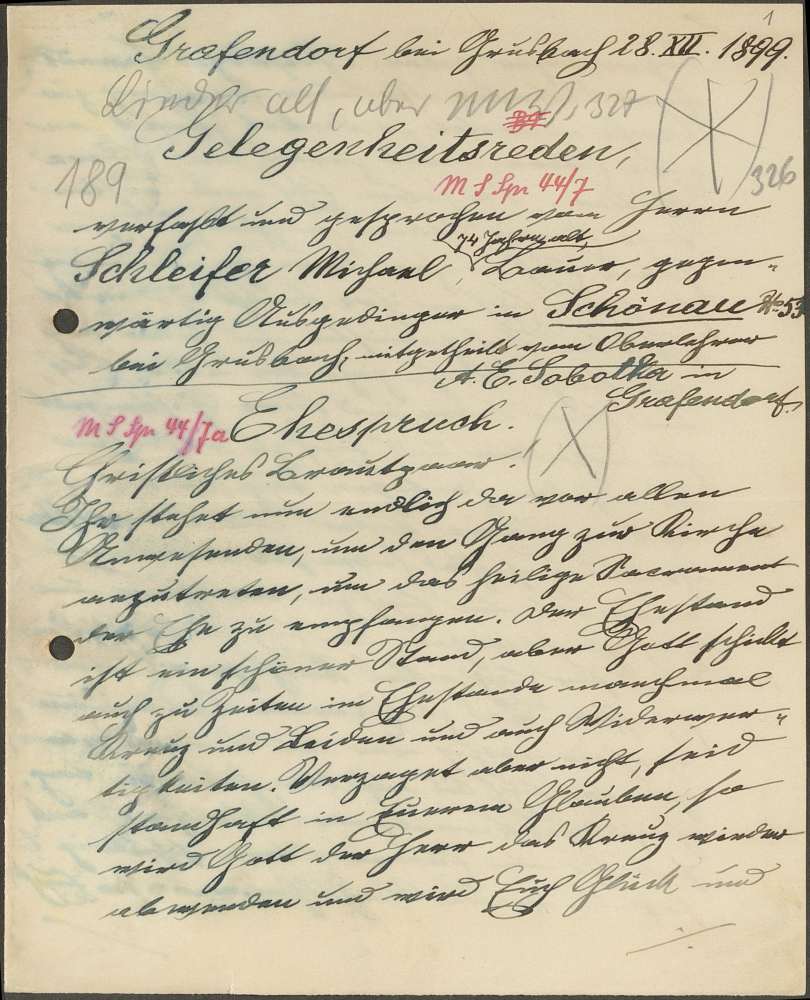 1
Grafendorf bei Grusbach 28. XII. 1899.
Lieder all, aber 327
Gelegenheitsreden,
189
M S Spr 44/7
326
verfaßt und gesprochen vom Herrn
74 Jahre alt,
Schleifer Michael, Bauer, gegen-
wärtig Ausgedinger in Schönau No 53
bei Grusbach, mitgetheilt vom Oberlehrer
A. E. Sobotka in
Grafendorf.
M S Spr 44/7a Ehespruch.
Christliches Brautpaar.
Ihr stehet nun endlich da vor allen
Anwesenden, um den Gang zur Kirche
anzutreten, um das heilige Sacrament
der Ehe zu empfangen. Der Ehestand
ist ein schöner Stand, aber Gott schickt
auch zu Zeiten im Ehestande manchmal
Kreuz und Leiden und auch Widerwer-
tigkeiten. Verzaget aber nicht, seid
standhaft in Euerem Glauben, so
wird Gott der Herr das Kreuz wieder
abwenden und wird Euch Glück und
./.